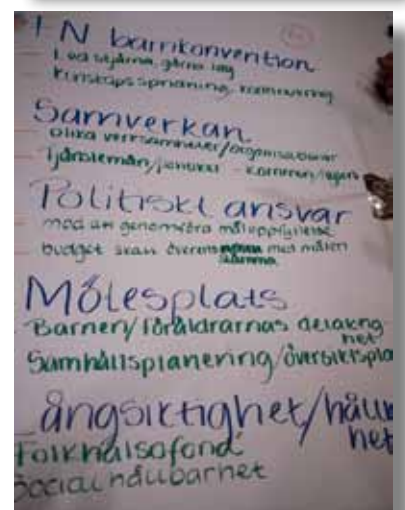 FN barnkonvention
- Led stjärna, gärna lag
- Kunskapsspridning, kommunering
Samverkan
- Olika verksamheter/organisationer
- Tjänstemän/politiker - kommun/
Politiskt ansvar
- mod att genomföra måluppfyllelse
- budget skall överensstämma med målen
Mötesplats
Barnen/föräldrarnas delaktighet
Samhällsplanering/översiktspla
Långsiktighet/hållbarhet
Folkhälsofond
Social hållbarhet